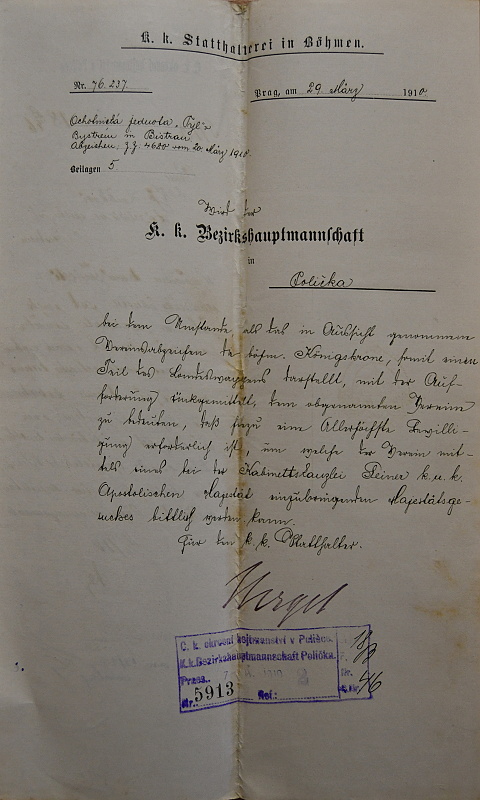 K. k. Statthalterei in Böhmen.
Nr. 76.237
Prag, am 29 März 1910.
Ochotnická jednota „Tyl“
Bystrém in Bistrau
Abzeichen, z. Z. 4680 vom 20. März 1910.
Beilagen 5
Wird der
K. k. Bezirkshauptmannschaft
in
Polička
bei dem Umstande als das in Aussicht genommene
Vereinsabzeichen die böhm. Königskrone, somit einen
Teil des Landeswappens darstellt, mit der Auf-
forderung rückgemittelt, dem obgenannten Verein
zu bedeuten, daß hiezu eine Allerhöchste Bewilli-
gung erforderlich ist, um welche der Verein mit-
tels eines bei der Kabinettskanzlei Seiner k. u. k.
Apostolischen Majestät einzubringenden Majestätsge-
suches bittlich werden kann.
Für den k. k. Statthalter.
C. k. okresní hejtmanství v Poličce.
K.k. Bezirkshauptmannschaft Polička.
Praes. 7
Nr. 5913 Ref.:
46